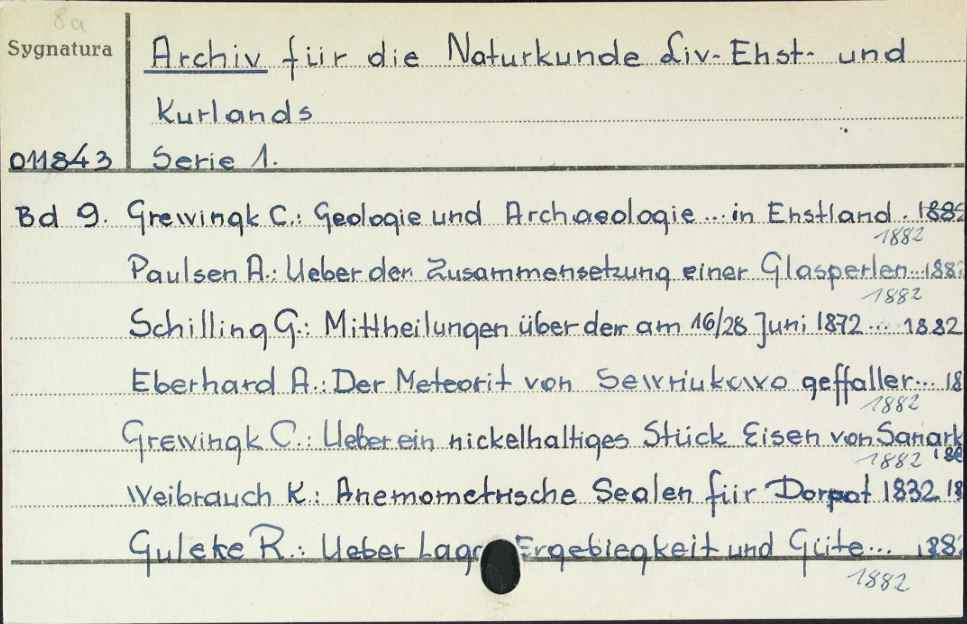 8a
Sygnatura
Archiv für die Naturkunde Liv-Ehst- und
Kurlands
011843 Serie 1.
Bd 9. Grewingk C.: Geologie und Archaeologie... in Ehstland. 1882
1882
Paulsen A.: Ueber den Zusammensetzung einer Glasperlen... 188
1882
Schilling G.: Mittheilungen über den am 16/28 Juni 1872... 1882
Eberhard A.: Der Meteorit von Sewriukowo geffaller... 18
1882
Grewingk C.: Ueber ein nickelhaltiges Stück Eisen von Sanark
1882 188
Weibrauch K.: Anemometrische Sealen für Dorpat 1832 18
Guleke R.: Ueber Lage Ergebiegkeit und Güte... 188
1882